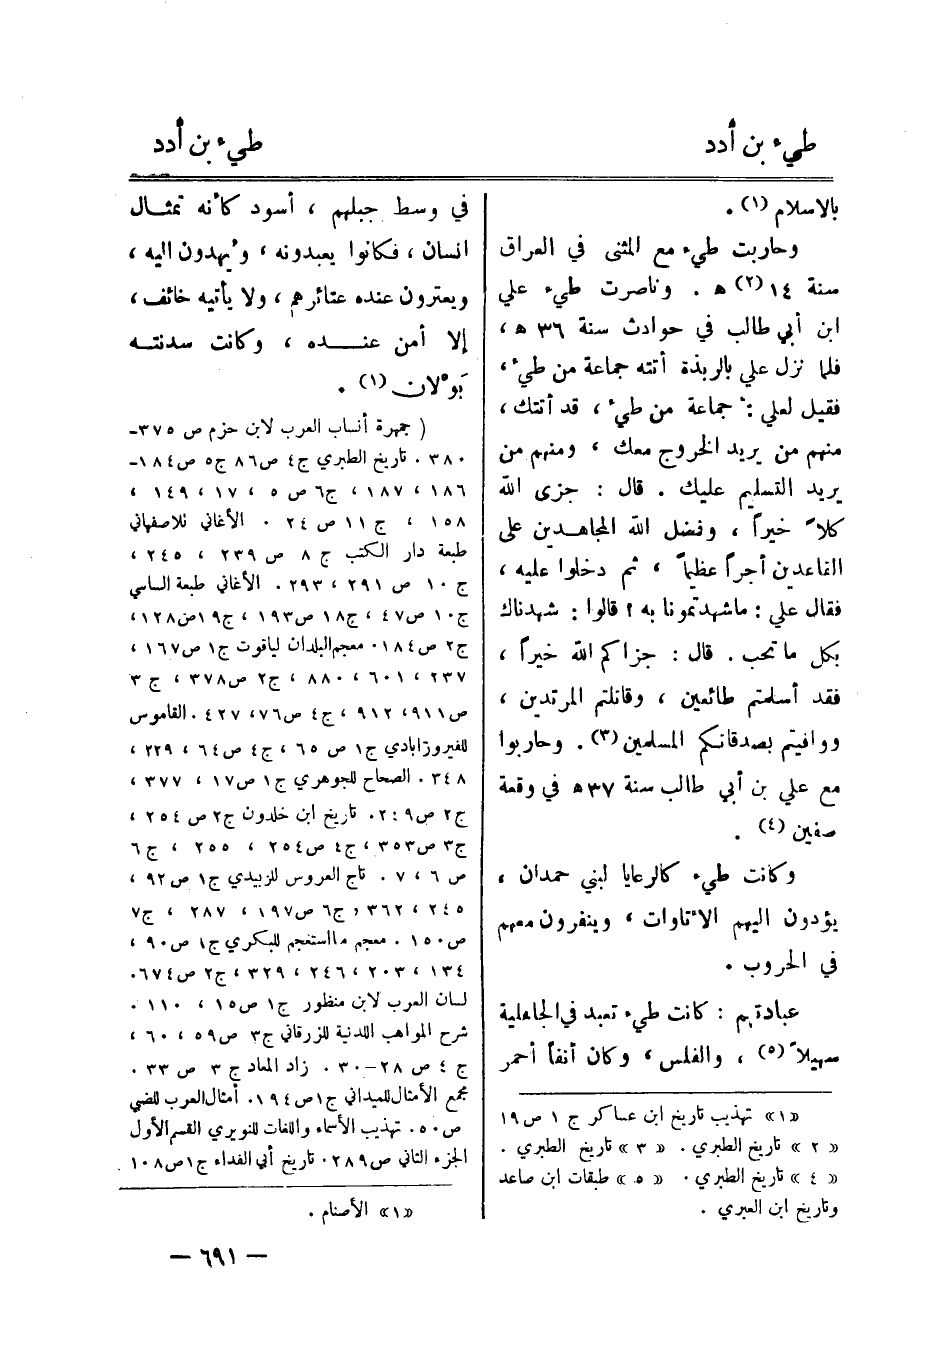 طيء بن أدد
طيء بن أدد
بالاسلام (١) .
وحاربت طيء مع المثنى في العراق
سنة ١٤ (٢) ه . وناصرت طيء علي
ابن أبي طالب في حوادث سنة ٣٦ ه ،
فلما نزل علي بالربذة أتته جماعة من طيء ،
فقيل لعلي : جماعة من طيء ، قد أتتك ،
منهم من يريد الخروج معك ، ومنهم من
يريد التسليم عليك . قال : جزى الله
كلاً خيراً ، وفضل الله المجاهدين على
القاعدين أجراً عظيماً ، ثم دخلوا عليه ،
فقال علي : ماشهدتمونا به ؟ قالوا : شهدناك
بكل ما تحب . قال : جزاكم الله خيراً ،
فقد أسلمتم طائعين ، وقاتلتم المرتدين ،
ووافيتم بصدقاتكم المسلمين (٣) . وحاربوا
مع علي بن أبي طالب سنة ٣٧ ه في وقعة
صفين (٤) .
وكانت طيء كالرعايا لبني حمدان ،
يؤدون اليهم الأتاوات ، وينفرون معهم
في الحروب .
عبادتهم : كانت طيء تعبد في الجاهلية
سهيلاً (٥) ، والفلس ، وكان أنفاً أحمر
«١» تهذيب تاريخ ابن عساكر ج ١ ص ١٩
«٢» تاريخ الطبري . «٣» تاريخ الطبري .
«٤» تاريخ الطبري . «٥» طبقات ابن صاعد
وتاريخ ابن العبري .
في وسط جبلهم ، أسود كأنه تمثال
انسان ، فكانوا يعبدونه ، ويُهدون اليه ،
ويعترون عنده عتائرهم ، ولا يأتيه خائف ،
إلا أمن عنده ، وكانت سدنته
بَوْلان (١) .
( جمهرة أنساب العرب لابن حزم ص ٣٧٥-
٣٨٠ . تاريخ الطبري ج٤ ص٨٦ ج٥ ص١٨٤-
١٨٦ ، ١٨٧ ، ج٦ ص ٥ ، ١٧ ، ١٤٩ ،
١٥٨ ، ج ١١ ص ٢٤ . الأغاني للاصفهاني
طبعة دار الكتب ج ٨ ص ٢٣٩ ، ٢٤٥ ،
ج ١٠ ص ٢٩١ ، ٢٩٣ . الأغاني طبعة الساسي
ج١٠ ص٤٧ ، ج١٨ ص١٩٣ ، ج١٩ص١٢٨،
ج٢ ص١٨٤ . معجم البلدان لياقوت ج١ ص١٦٧ ،
٢٣٧ ، ٦٠١ ، ٨٨٠ ، ج٢ ص٣٧٨ ، ج ٣
ص٩١١، ٩١٢ ، ج٤ ص٧٦، ٤٢٧ . القاموس
للفيروزابادي ج١ ص ٦٥ ، ج٤ ص٦٤ ، ٢٢٩ ،
٣٤٨ . الصحاح للجوهري ج١ ص١٧ ، ٣٧٧ ،
ج٢ . تاريخ ابن خلدون ج٢ ص ٢٥٤ ،
ج٣ ص٣٥٣ ، ج٤ ص٢٥٤ ، ٢٥٥ ، ج٦
ص ٦ ، ٧ . تاج العروس للزبيدي ج١ ص٩٢ ،
٢٤٥ ، ٣٦٢ ، ج٦ ص١٩٧ ، ٢٨٧ ، ج٧
ص١٥٠ . معجم ما استعجم للبكري ج١ ص٩٠ ،
١٣٤ ، ٢٠٣ ، ٢٤٦ ، ٣٢٩ ، ج٢ ص٦٧٤.
لسان العرب لابن منظور ج١ ص١٥ ، ١١٠ .
شرح المواهب اللدنية للزرقاني ج٣ ص٥٩ ، ٦٠ ،
ج ٤ ص ٢٨-٣٠ . زاد المعاد ج ٣ ص ٣٣ .
مجمع الأمثال للميداني ج١ ص١٩٤ . أمثال العرب للضبي
ص٥٠ . تهذيب الأسماء واللغات للنويري القسم الأول
الجزء الثاني ص٢٨٩ . تاريخ أبي الفداء ج١ ص١٠٨ .
«١» الأصنام .
— ٦٩١ —